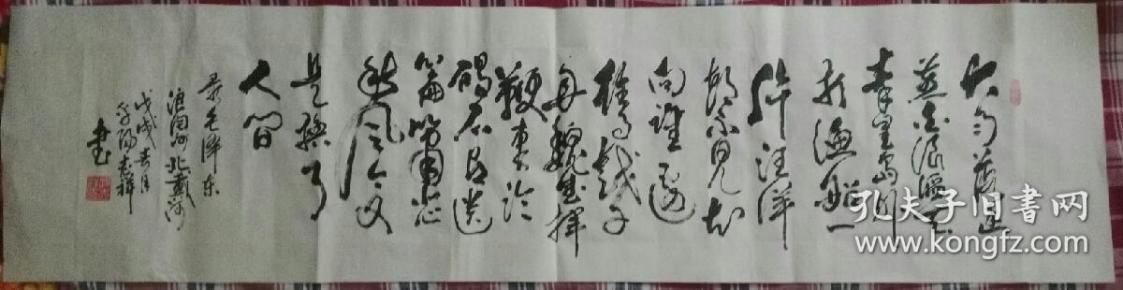 大雨落幽
燕白浪滔天
秦皇島外
打漁船一
片汪洋
都不見知
向誰邊
往事越千
年魏武揮
鞭東臨
碣石有遺
篇蕭瑟
秋風今又
是換了
人間
录毛泽东
浪淘沙北戴河
戊戌春月
书
孔夫子旧书网
www.kongfz.com